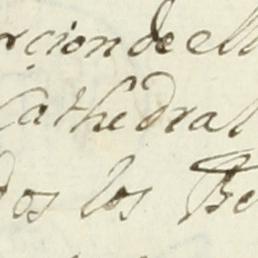 rcion de ell
Cathedral
dos los Be